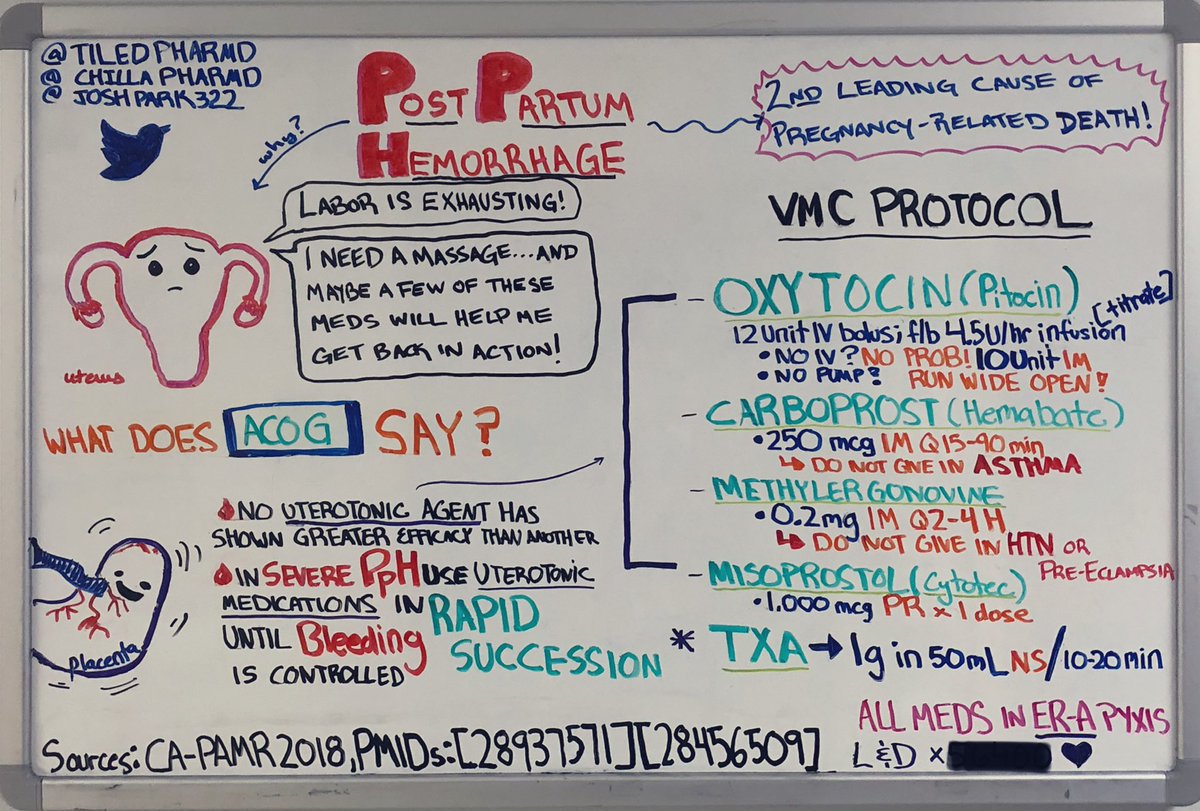 @TILEDPHARMD
@CHILLAPHARMD
@JOSHPARK322
POST PARTUM
HEMORRHAGE
why?
2ND LEADING CAUSE OF
PREGNANCY-RELATED DEATH!
LABOR IS EXHAUSTING!
I NEED A MASSAGE...AND
MAYBE A FEW OF THESE
MEDS WILL HELP ME
GET BACK IN ACTION!
uterus
WHAT DOES ACOG SAY?
NO UTEROTONIC AGENT HAS
SHOWN GREATER EFFICACY THAN ANOTHER
IN SEVERE PPH USE UTEROTONIC
MEDICATIONS IN RAPID
SUCCESSION
UNTIL Bleeding
IS CONTROLLED
placenta
VMC PROTOCOL
- OXYTOCIN (Pitocin)
[titrate]
12 Unit IV bolus; f/b 4.5U/hr infusion
• NO IV? NO PROB! 10 Unit IM
• NO PUMP? RUN WIDE OPEN!
- CARBOPROST (Hemabate)
• 250 mcg IM Q15-90 min
↳ DO NOT GIVE IN ASTHMA
- METHYLERGONOVINE
• 0.2mg IM Q2-4 H
↳ DO NOT GIVE IN HTN OR
PRE-ECLAMPSIA
- MISOPROSTOL (Cytotec)
• 1,000 mcg PR x 1 dose
* TXA → 1g in 50mL NS/10-20min
ALL MEDS IN ER-A PYXIS
L&D x
Sources: CA-PAMR 2018, PMIDs: [28937571] [28456509]